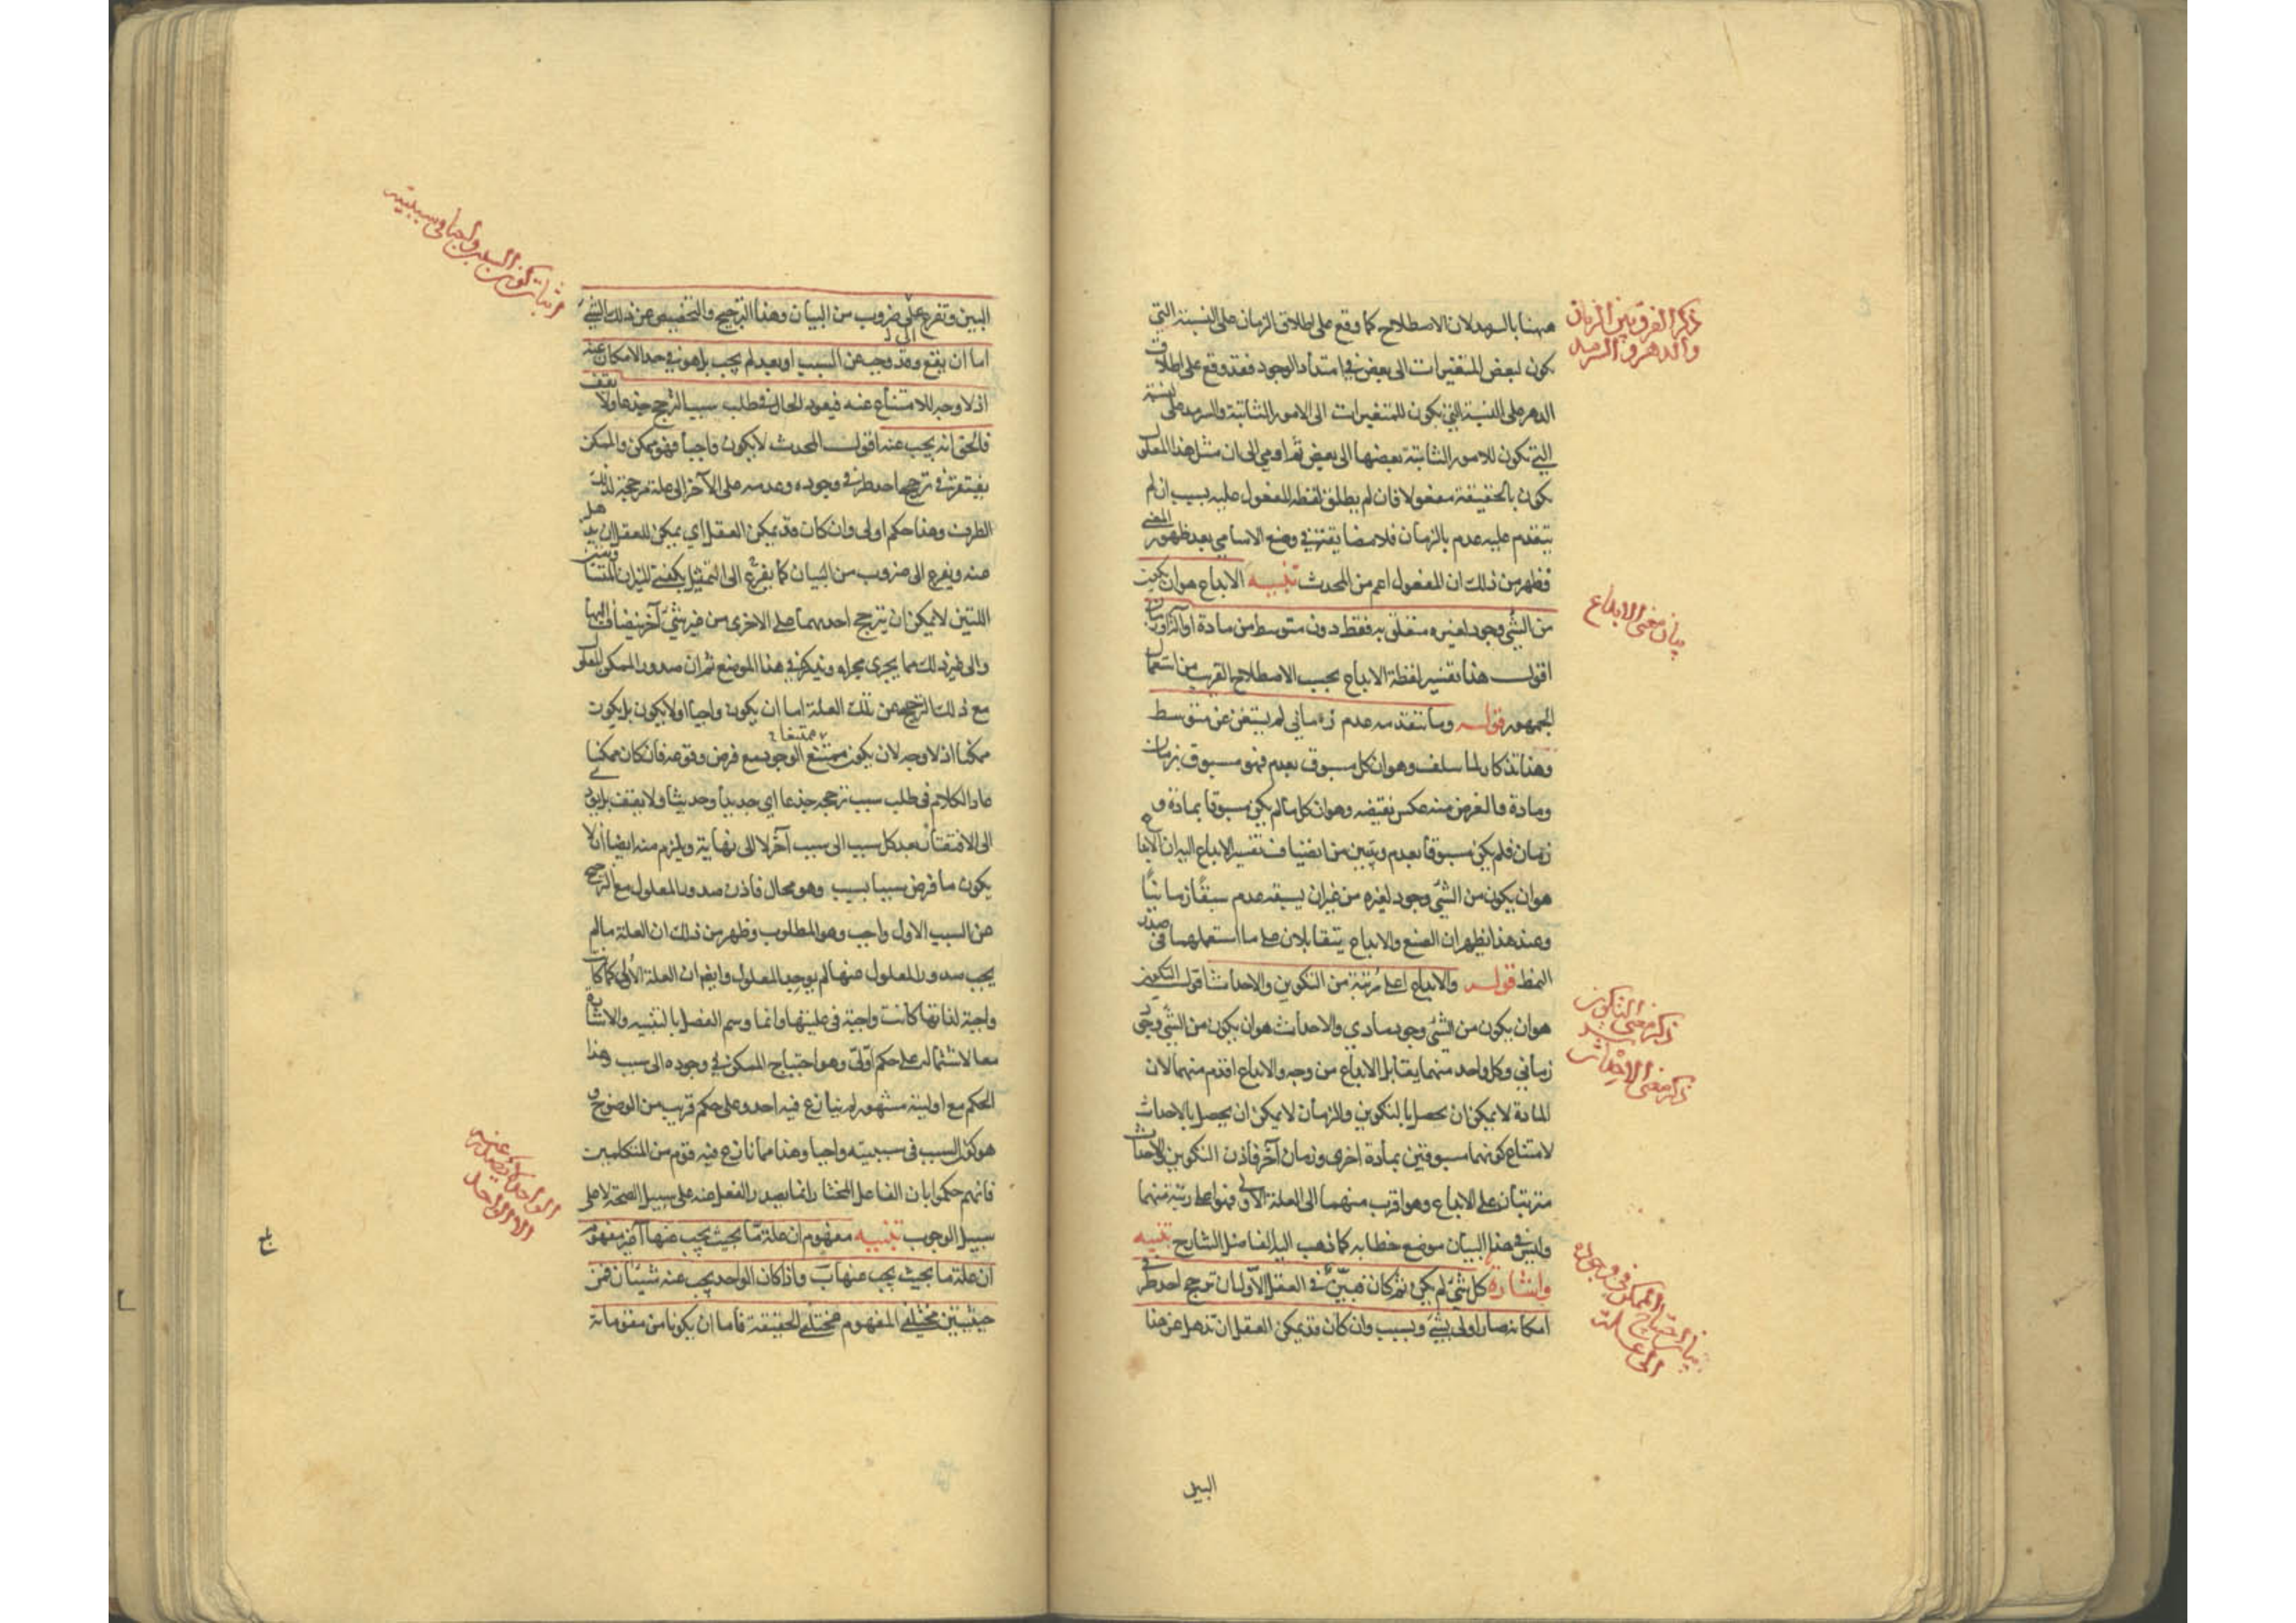 ذكر الفرق بين الزمان
والدهر والسرمد
ههنا بالسرمد لان الاصطلاح كما وقع على اطلاق الزمان على النسبة التي
يكون لبعض المتغيرات الى بعض في امتداد الوجود فقد وقع على اطلاق
الدهر على النسبة التي يكون للمتغيرات الى الامور الثابتة والسرمد على النسبة
التي تكون للامور الثابتة بعضها الى بعض ثم اومى الى ان مثل هذا المعلول
يكون بالحقيقة مفعولا فان لم يطلق لفظه المفعول عليه بسبب ان لم
يتقدم عليه عدم بالزمان فلا مضايقة في وضع الاسامي بعد ظهور المعنى
فظهر من ذلك ان المفعول اعم من المحدث تنبيه الابداع هو ان يكون
بيان معنى الابداع
من الشئ وجود لغيره متعلق به فقط دون متوسط من مادة او آلة او زمان
اقول هذا تفسير لفظة الابداع بحسب الاصطلاح القريب من استعمال
الجمهور قوله وما يتقدمه عدم زماني لم يستغن عن متوسط
وهذا تذكار لما سلف وهو ان كل مسبوق بعدم فهو مسبوق بزمان
ومادة والغرض منه عكس نقيضه وهو ان كل ما لم يكن مسبوقا بمادة و
زمان فلم يكن مسبوقا بعدم ويتبين من انضياف تفسير الابداع اليه ان الابداع
هو ان يكون من الشئ وجود لغيره من غير ان يسبقه عدم سبقا زمانيا
وعند هذا يظهر ان الصنع والابداع يتقابلان على ما استعملهما في صدر
النمط قوله والابداع اعلى رتبة من التكوين والاحداث اقول التكوين
ذكر معنى التكوين
هو ان يكون من الشئ وجود مادي والاحداث هو ان يكون من الشئ وجود
ذكر معنى الاحداث
زماني وكل واحد منهما يقابل الابداع من وجه والابداع اقدم منهما لان
المادة لا يمكن ان يحصل بالتكوين والزمان لا يمكن ان يحصل بالاحداث
لامتناع كونهما مسبوقين بمادة اخرى وزمان آخر فاذن التكوين والاحداث
مترتبان على الابداع وهو اقرب منهما الى العلة الاولى فهو اعلى رتبة منهما
وليس في هذا البيان موضع خطابه كما ذهب اليه الفاضل الشارح تنبيه
واشارة كل شئ لم يكن ثم كان فبين في العقل الاول ان ترجح احد طرفي
بيان احتياج الممكن في وجوده
الى علة
امكانه صار اولى بشئ وبسبب وان كان قد يمكن العقل ان تذهل عن هذا
البين
اثبات كون السبب واجبا في سببيته
البين وتفرع على ضروب من البيان وهذا الترجيح والتخصيص عن ذلك الشئ
الى
اما ان يقع وقد وجب عن السبب او بعد لم يجب بل هو في حد الامكان عنه
اذ لا وجه للامتناع عنه فيعود الحال في طلب سبب الترجح جذعا ولا يقف
فالحق انه يجب عنه اقول المحدث لا يكون واجبا فهو ممكن والممكن
يفتقر في ترجح احد طرفي وجوده وعدمه على الآخر الى علة مرجحة لذلك
الطرف وهذا حكم اولى وان كان قد يمكن العقل اي يمكن للعقل ان يذهل
عنه ويفرع الى ضروب من البيان كما يفرع الى التمثيل بكفتي الميزان المتساويتين
اللتين لا يمكن ان يترجح احدهما على الاخرى من غير شئ آخر ينضاف اليها
والى غير ذلك مما يجري مجراه ويذكر في هذا الموضع ثم ان صدور الممكن المعلول
مع ذلك الترجح عن تلك العلة اما ان يكون واجبا او لا يكون بل يكون
ممكنا اذ لا وجه لان يكون ممتنع الوجود مع فرض وقوعه فان كان ممكنا
ممتنعا
عاد الكلام في طلب سبب ترجحه جذعا اي جديدا وحديثا ولا يقف بل يؤدي
الى الافتقار بعد كل سبب الى سبب آخر لا الى نهاية ويلزم منه ايضا ان لا
يكون ما فرض سببا بسبب وهو محال فاذن صدور المعلول مع الترجح
عن السبب الاول واجب وهو المطلوب وظهر من ذلك ان العلة ما لم
يجب صدور المعلول عنها لم يوجد المعلول وايضا ان العلة الاولى كما كانت
واجبة لذاتها كانت واجبة في عليتها وانما وسم الفصل بالتنبيه والاشارة
معا لاشتماله على حكم اولي وهو احتياج الممكن في وجوده الى سبب وهذا
الحكم مع اوليته مشهور لم ينازع فيه احد وعلى حكم قريب من الوضوح و
هو كون السبب في سببيته واجبا وهذا مما نازع فيه قوم من المتكلمين
فانهم حكموا بان الفاعل المختار انما يصدر الفعل عنه على سبيل الصحة لا على
الواحد لا يصدر عنه
الا الواحد
سبيل الوجوب تنبيه مفهوم ان علة ما بحيث يجب عنها آ غير مفهوم
ان علة ما بحيث يجب عنها ب واذا كان الواحد يجب عنه شيئان فمن
حيثيتين مختلفي المفهوم مختلفي الحقيقة فاما ان يكونا من مقوماته